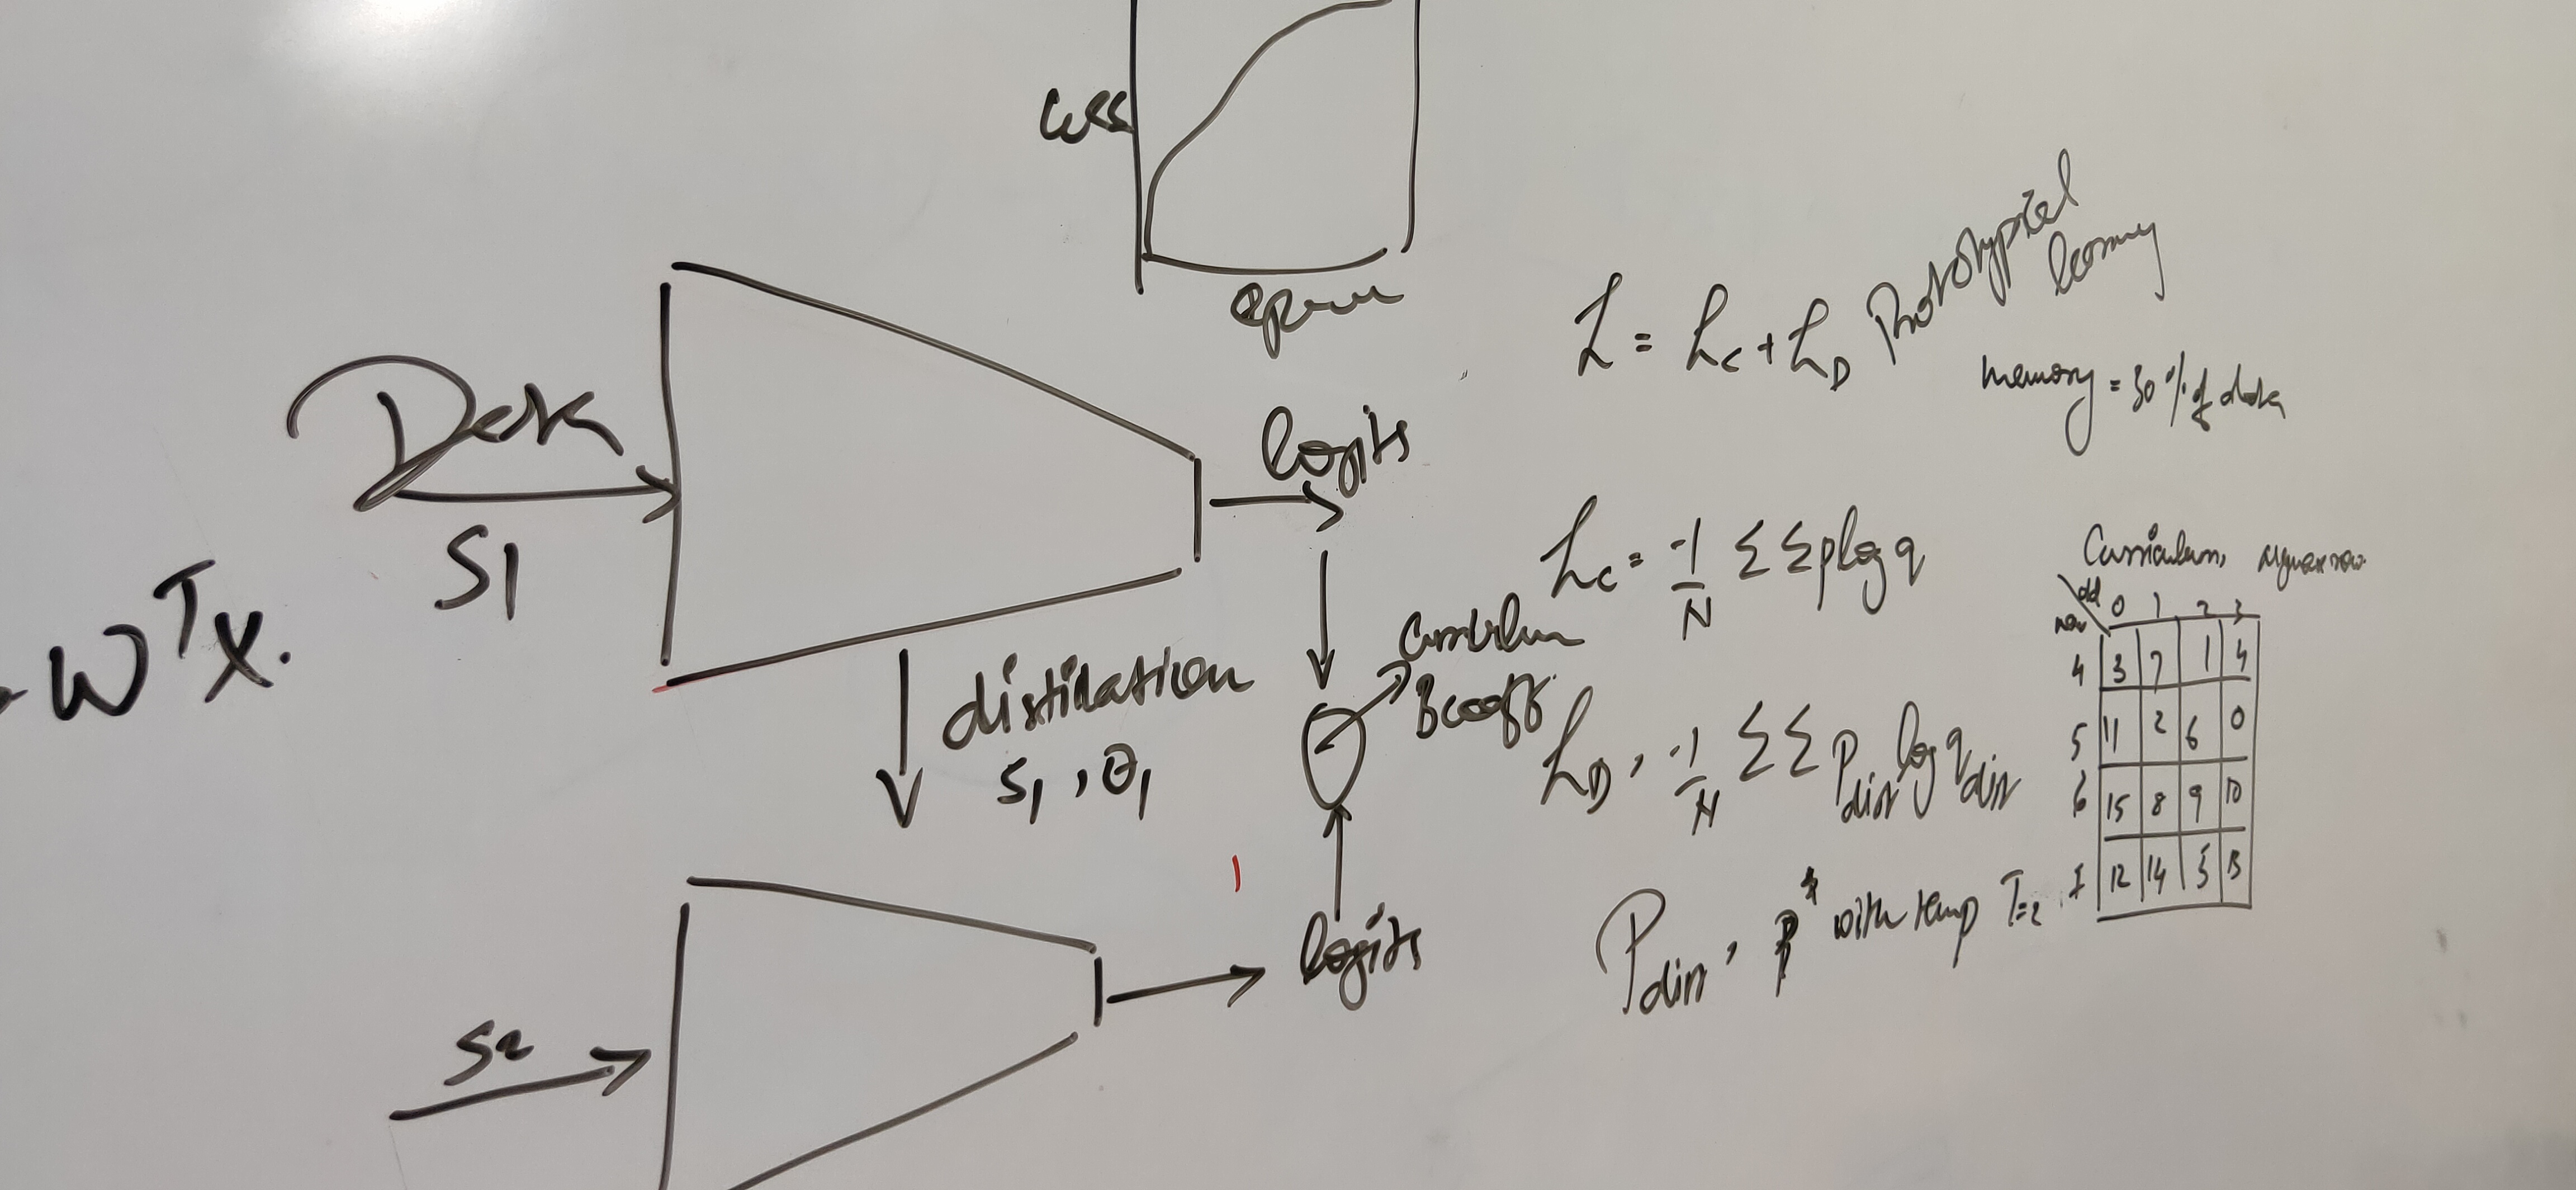 loss
epoch
Data
S1
WᵀX.
logits
distillation
S₁, θ₁
Curriculum
B coeff.
S2
logits
L = L_C + L_D Prototypical learning
memory = 30% of data
L_C = -1/N Σ Σ p log q
L_D, -1/N Σ Σ P_dist log q_dist
P_dist, P* with temp T=2
Curriculum,
old
new
0 1 2 3
4 3 7 1 4
5 11 2 6 0
6 15 8 9 10
7 12 14 5 13